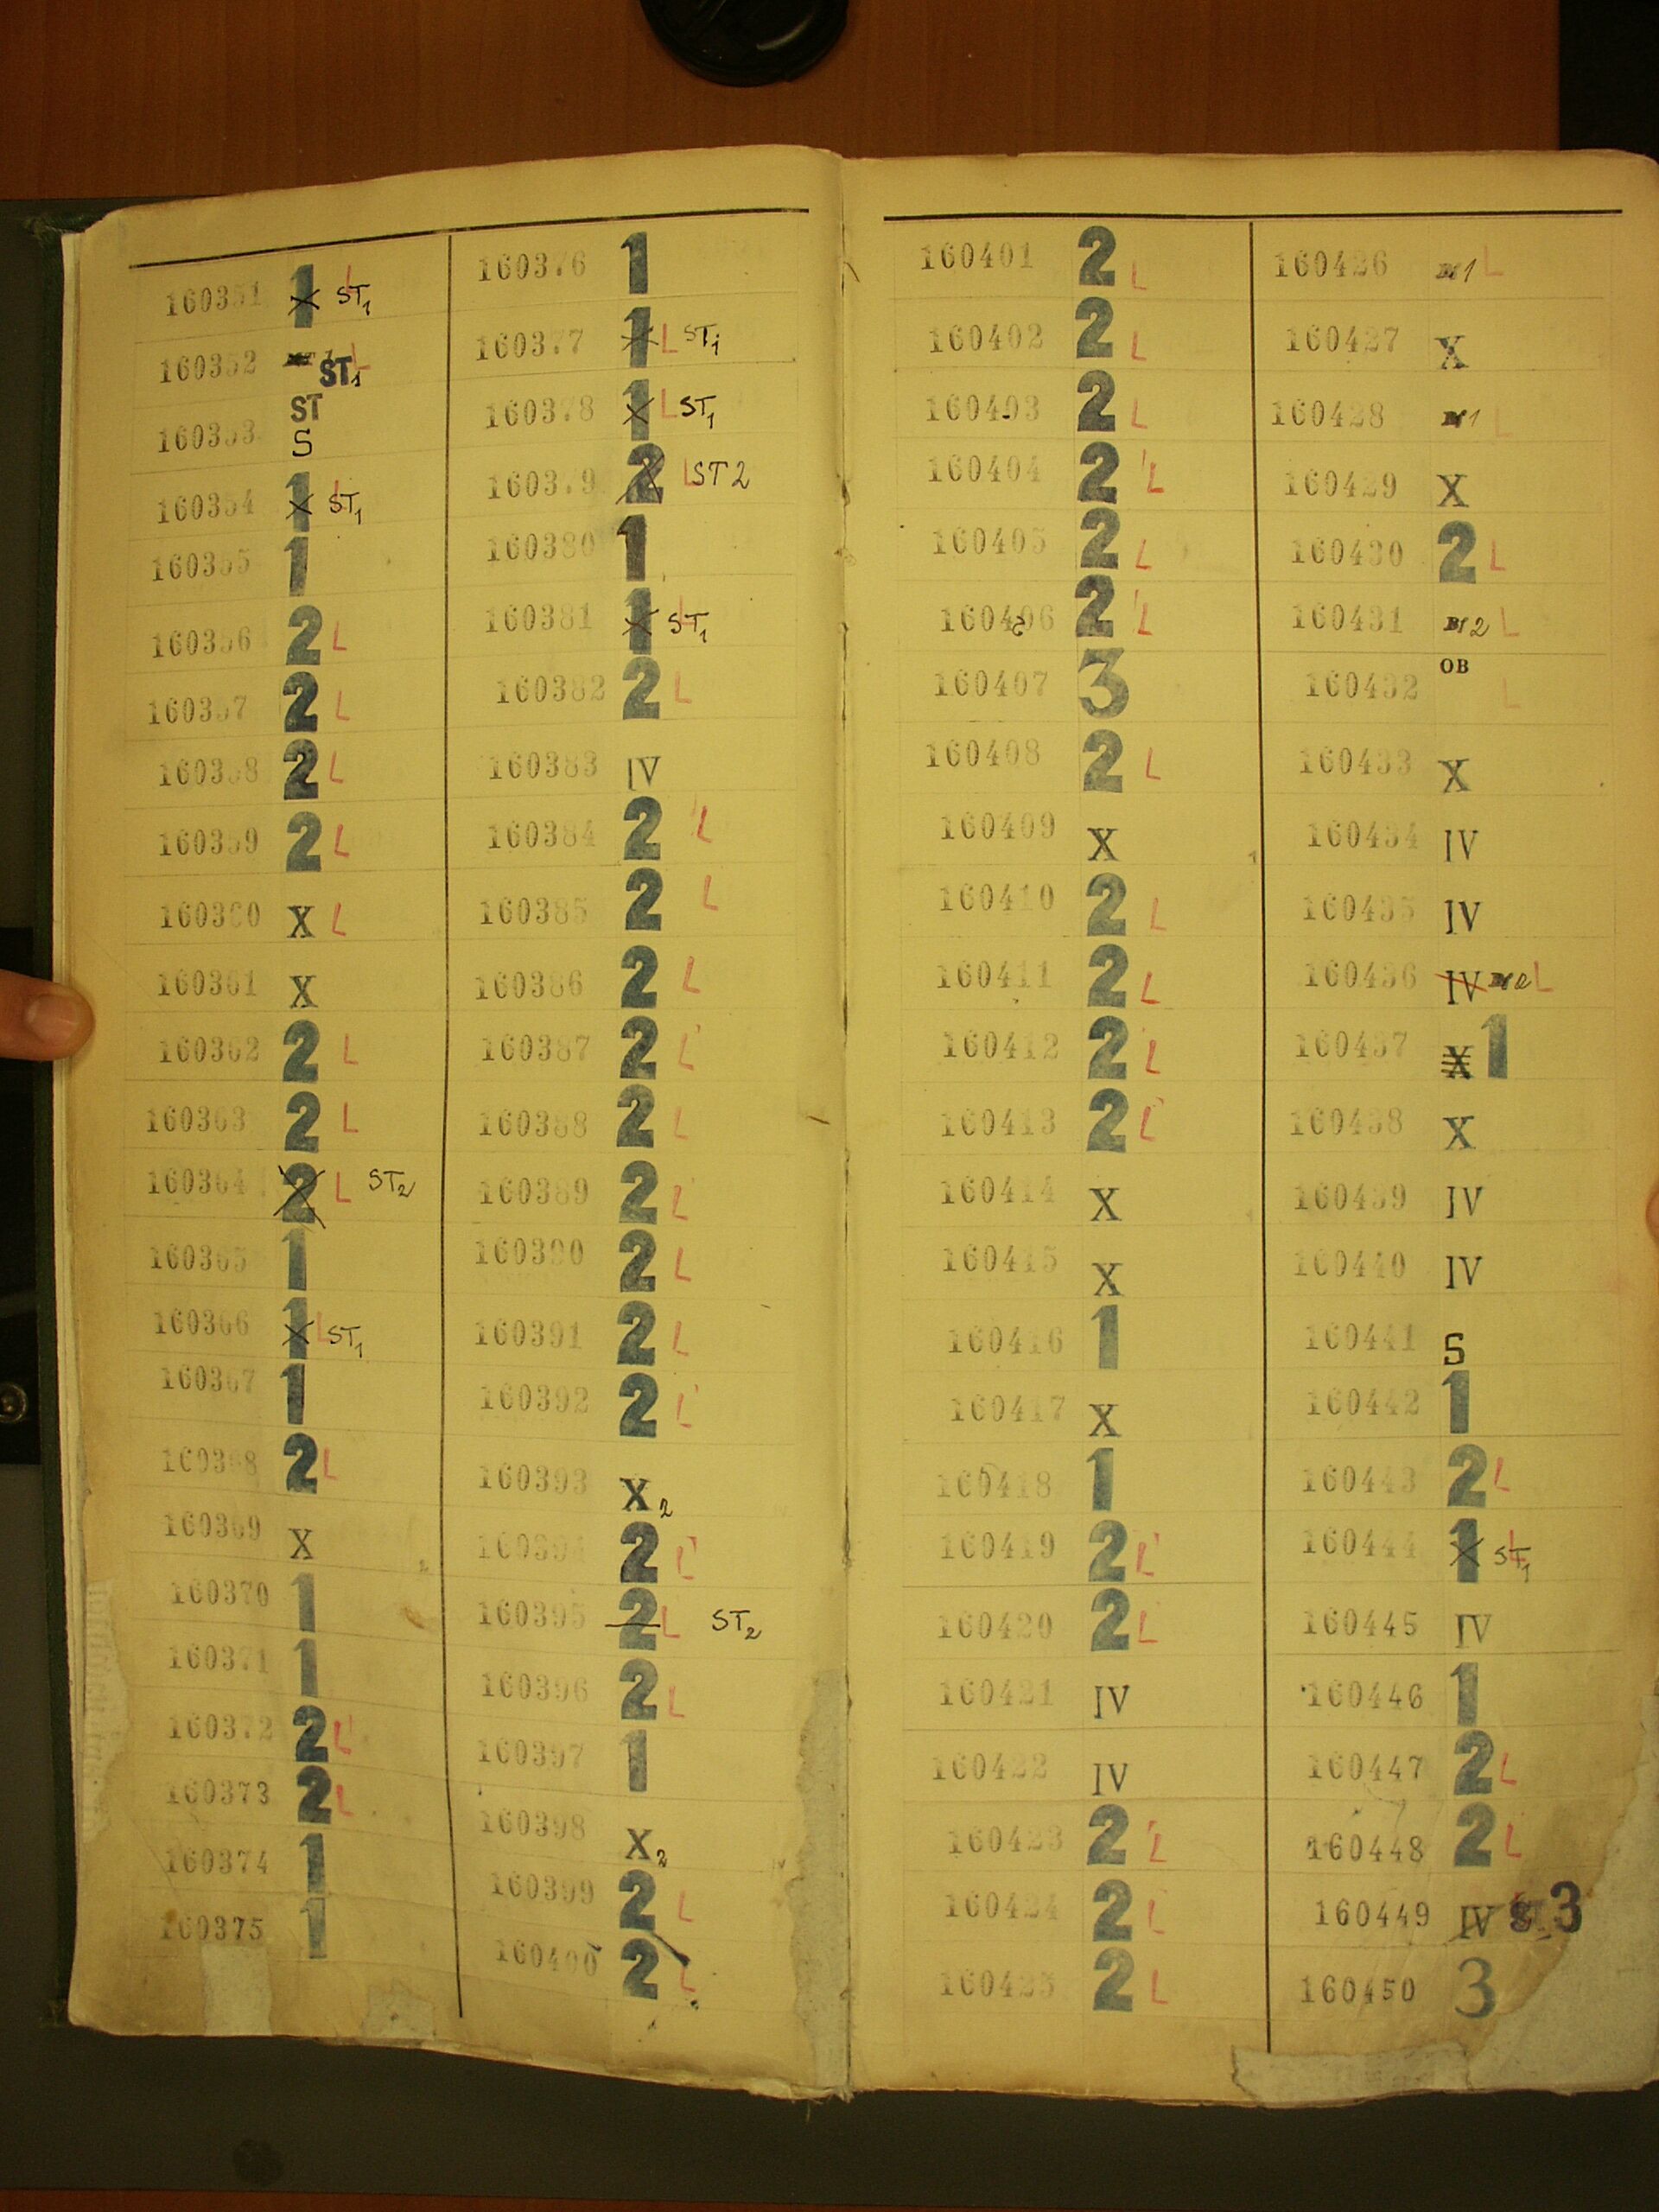 160351 1 L ST1
160352 ST1 L
ST
160353 S
160354 1 L ST1
160355 1
160356 2 L
160357 2 L
160358 2 L
160359 2 L
160360 X L
160361 X
160362 2 L
160363 2 L
160364 2 L ST2
160365 1
160366 1 L ST1
160367 1
160368 2 L
160369 X
160370 1
160371 1
160372 2 L
160373 2 L
160374 1
160375 1
160376 1
160377 1 L ST1
160378 1 L ST1
160379 2 L ST2
160380 1
160381 1 L ST1
160382 2 L
160383 IV
160384 2 L
160385 2 L
160386 2 L
160387 2 L
160388 2 L
160389 2 L
160390 2 L
160391 2 L
160392 2 L
160393 X2
160394 2 L
160395 2 L ST2
160396 2 L
160397 1
160398 X2
160399 2 L
160400 2 L
160401 2 L
160402 2 L
160403 2 L
160404 2 L
160405 2 L
160406 2 L
160407 3
160408 2 L
160409 X
160410 2 L
160411 2 L
160412 2 L
160413 2 L
160414 X
160415 X
160416 1
160417 X
160418 1
160419 2 L
160420 2 L
160421 IV
160422 IV
160423 2 L
160424 2 L
160425 2 L
160426 1 L
160427 X
160428 1 L
160429 X
160430 2 L
160431 2 L
OB
160432 L
160433 X
160434 IV
160435 IV
160436 IV 2 L
160437 X 1
160438 X
160439 IV
160440 IV
160441 S
160442 1
160443 2 L
160444 1 L ST1
160445 IV
160446 1
160447 2 L
160448 2 L
160449 IV 3
160450 3